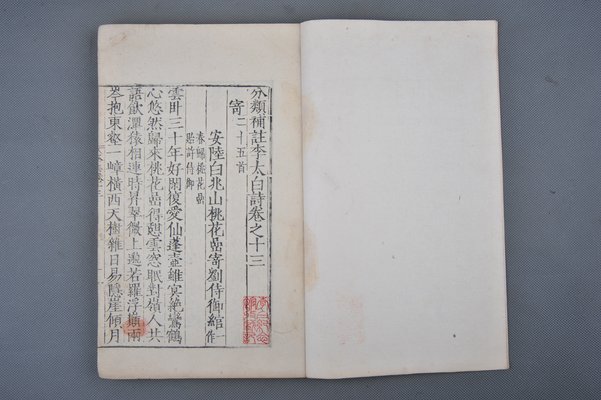 分類補註李太白詩卷之十三
寄二十五首
安陸白兆山桃花嵓寄劉侍御綰一作
春歸桃花嵓
貽許侍御
雲卧三十年好閑復愛仙蓬壺雖冥絶鸞鶴
心悠然歸來桃花嵓得憩雲窓眠對嶺人共
語飲潭猿相連時昇翠微上邈若羅浮巔兩
岑抱東壑一嶂橫西天樹雜日易隱崖傾月